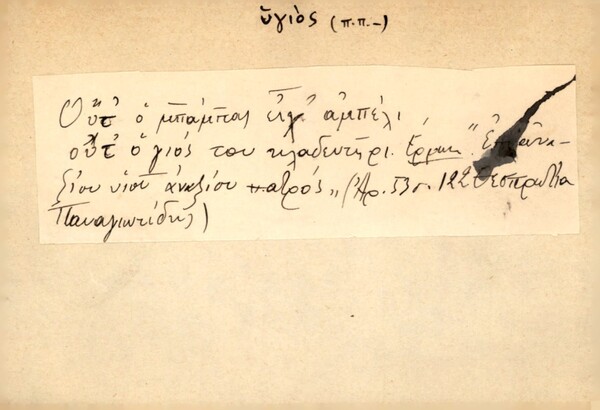 ὑγιὸς (π.π.-)
Οὔτ' ὁ μπάμπας εἶχ' ἀμπέλι
οὔτ' ὁ γιός του κλαδευτήρι. Ἑρμην.
ξίου υἱοῦ ἀναξίου πατρός,, (Ἀρ. 53 σ. 122 Θεσπρωτία
Παναγιωτίδης)